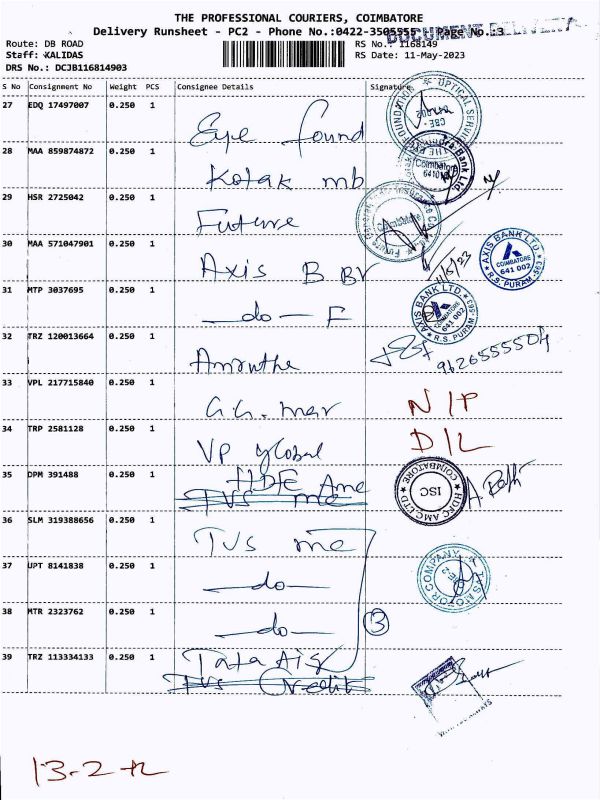 THE PROFESSIONAL COURIERS, COIMBATORE
DOCUMENT DELIVERY
Delivery Runsheet - PC2 - Phone No.:0422-3505555 Page No.:3
Route: DB ROAD RS No.: 1168149
Staff: KALIDAS RS Date: 11-May-2023
DRS No.: DCJB116814903
S No Consignment No Weight PCS Consignee Details Signature
27 EDQ 17497007 0.250 1
Eye found
28 MAA 859874872 0.250 1
Kotak mb
29 HSR 2725042 0.250 1
Future
30 MAA 571047901 0.250 1
Axis B BV
AXIS BANK LTD.
COIMBATORE
641 002
R.S. PURAM
31 MTP 3037695 0.250 1
do F
AXIS BANK LTD.
COIMBATORE
641 002
R.S. PURAM
32 TRZ 120013664 0.250 1
Amrutha
9626555504
33 VPL 217715840 0.250 1
G.G. mar N/P
34 TRP 2581128 0.250 1
VP global D/L
35 DPM 391488 0.250 1
HDFC Amc
TVS mc
HDFC AMC LTD
COIMBATORE
ISC
36 SLM 319388656 0.250 1
TVS mc
37 UPT 8141838 0.250 1
do
TVS MOTOR COMPANY
38 MTR 2323762 0.250 1
do
3
39 TRZ 113334133 0.250 1
Tata Aig
TVS Credit
13-2=12